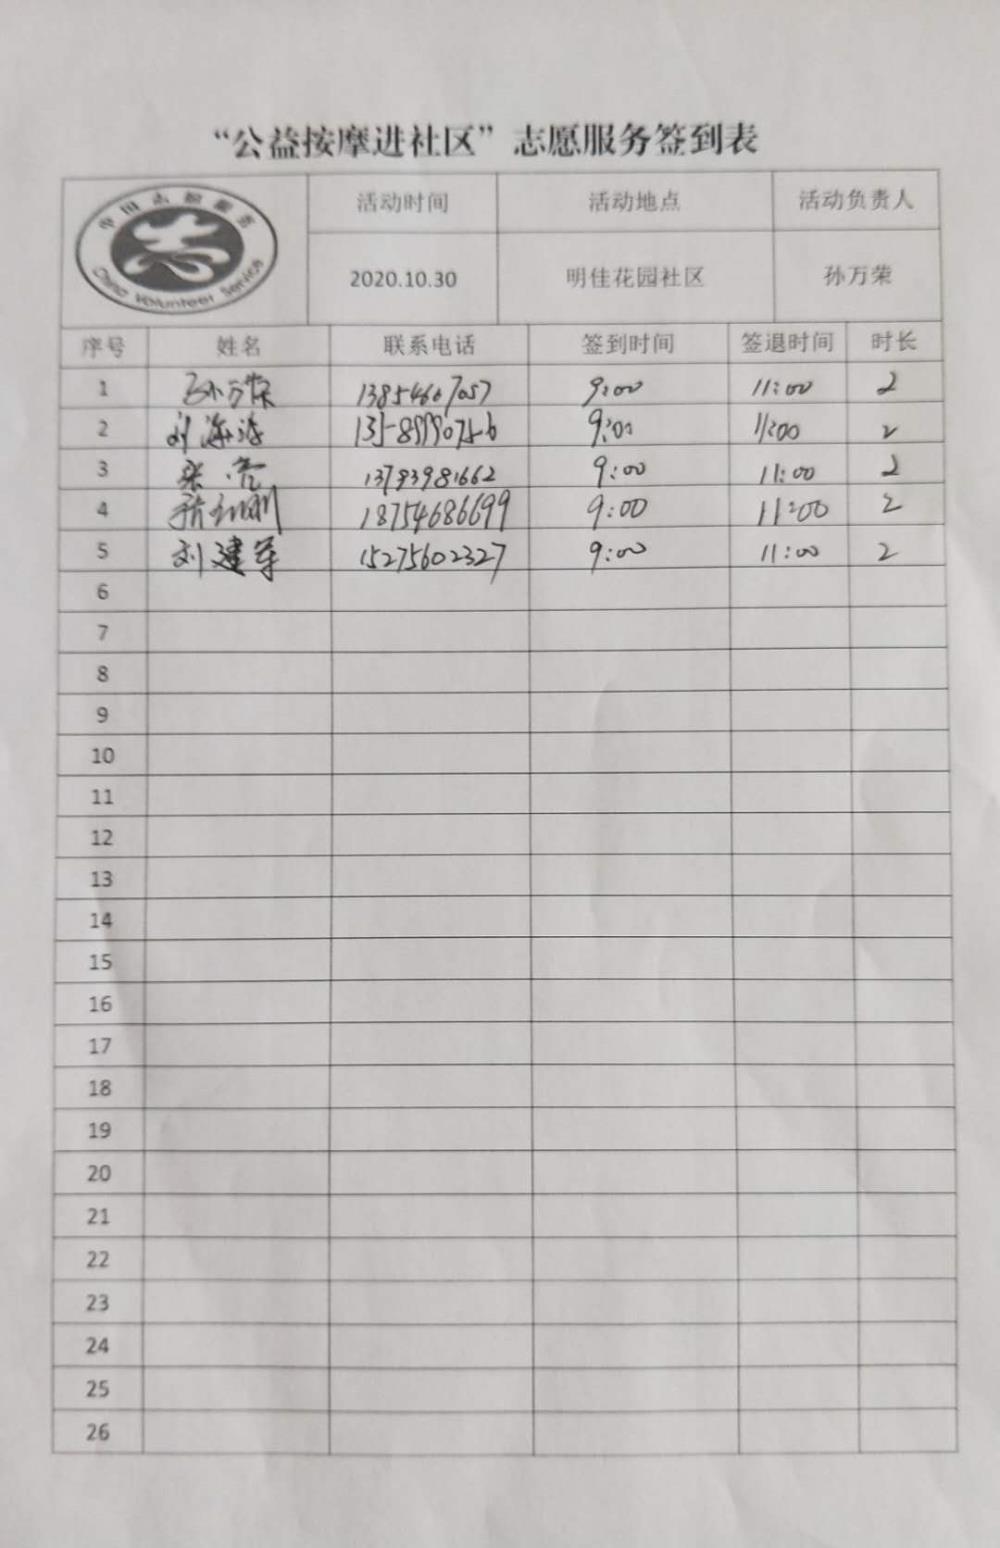 “公益按摩进社区”志愿服务签到表
中国志愿服务
China Volunteer Service
活动时间 活动地点 活动负责人
2020.10.30 明佳花园社区 孙万荣
序号 姓名 联系电话 签到时间 签退时间 时长
1 孙万荣 13854607057 9:00 11:00 2
2 刘海涛 9:00 11:00 2
3 张亮 13793981662 9:00 11:00 2
4 18754686699 9:00 11:00 2
5 刘建军 15275602327 9:00 11:00 2
6
7
8
9
10
11
12
13
14
15
16
17
18
19
20
21
22
23
24
25
26